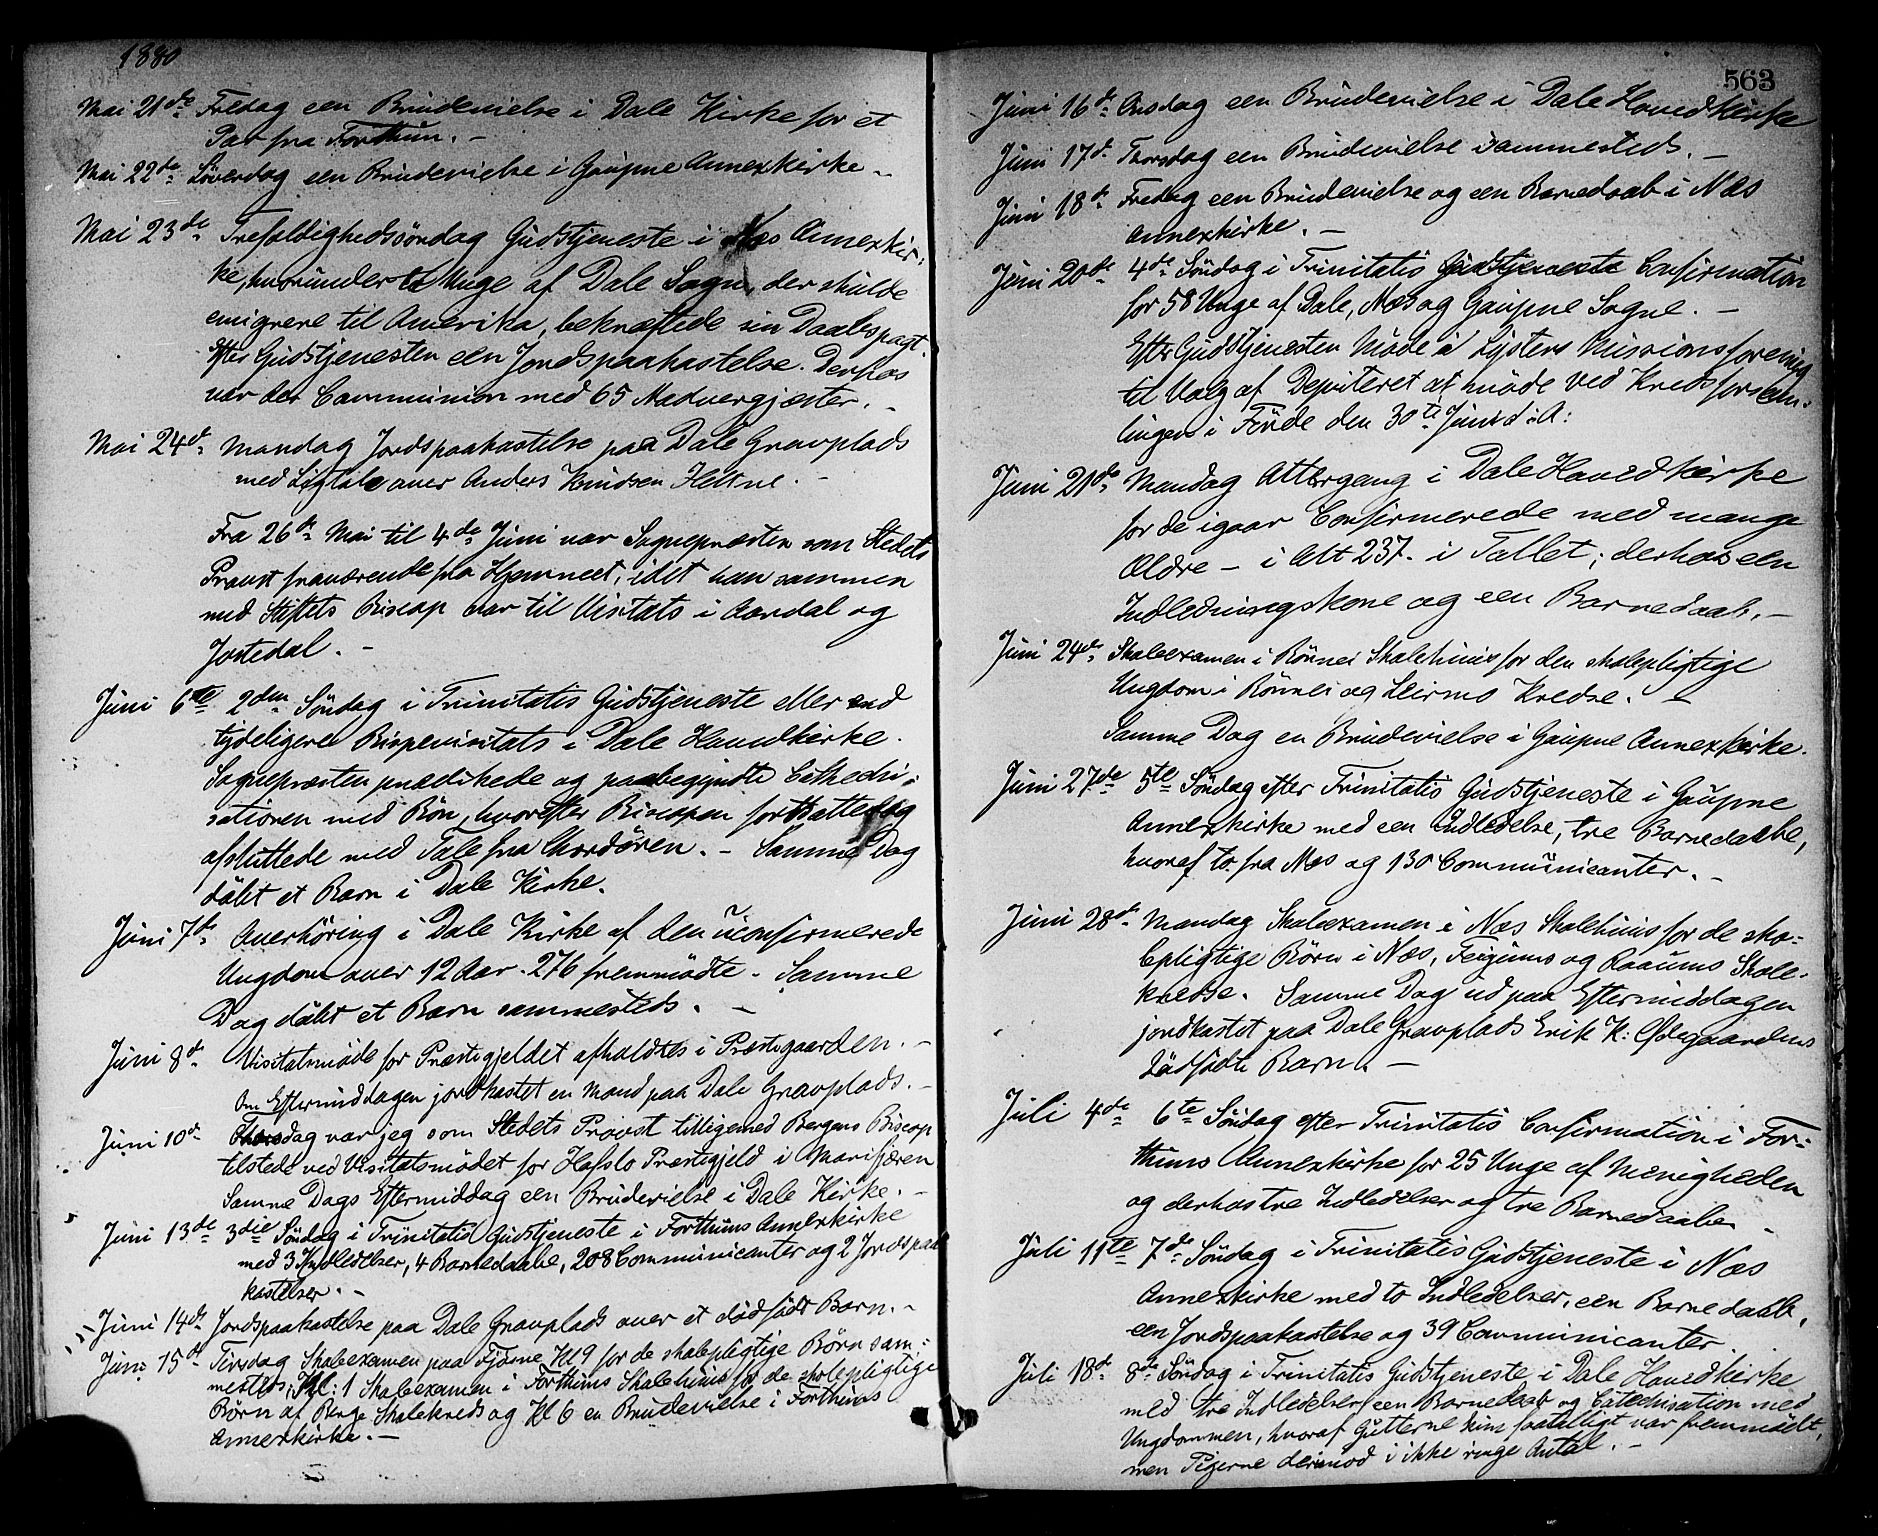 1880
Mai 21de Fredag een Brudevielse i Dale Kirke for et
Par fra Forthun. –
Mai 22de Löverdag een Brudevielse i Gaupne Annexkirke –
Mai 23de Trefoldighedssöndag Gudstjeneste i Næs Annexkir-
ke, hvorunder to Unge af Dale Sogn, der skulde
emigrere til Amerika, bekræftede sin Daabspagt.
Efter Gudstjenesten een Jordspaakastelse. Derhos
var der Communion med 65 Nadvergjæster. –
Mai 24de Mandag Jordspaakastelse paa Dale Gravplads
med Ligtale over Anders Knudsen Heltne. –
Fra 26de Mai til 4de Juni var Sognepræsten som Stedets
Provst fraværende fra Hjemmet, idet han sammen
med Stiftets Biscop var til Visitats i Aardal og
Jostedal. –
Juni 6te 2den Söndag i Trinitatis Gudstjeneste eller end
tydeligere Bispevisitats i Dale Hovedkirke.
Sognepræsten prædikede og paabegyndte Cathechi-
sationen med Bön, hvorefter Biscopen fortsatte og
afsluttede med Tale fra Chordören. – Samme Dag
döbt et Barn i Dale Kirke.
Juni 7de Overhöring i Dale Kirke af den uconfirmerede
Ungdom over 12 Aar. 276 fremmödte. Samme
Dag döbt et Barn sammesteds. –
Juni 8de Visitatsmöde for Præstegjeldet afholdtes i Præstegaarden. –
Om Eftermiddagen jordkastet en Mand paa Dale Gravplads. –
Juni 10de Thorsdag var jeg som Stedets Provst tilligemed Bergens Biscop
tilstede ved Visitatsmödet for Hafslo Præstegjeld i Marifjæren
Samme Dags Eftermiddag een Brudevielse i Dale Kirke. –
Juni 13de 3die Söndag i Trinitatis Gudstjeneste i Forthuns Annexkirke
med 3 Indledelser, 4 Barnedaabe, 208 Communicanter og 2 Jordspaa-
kastelser. –
Juni 14de Jordspaakastelse paa Dale Gravplads over et dödfödt Barn. –
Juni 15de Tirsdag Skoleexamen paa Fjösne Kl 9 for de skolepligtige Börn sam-
mesteds, Kl: 1 Skoleexamen i Forthuns Skolehuus for de skolepligtige
Börn af Berge Skolekreds og Kl 6 en Brudevielse i Forthuns
Annexkirke. –
563
Juni 16de Onsdag een Brudevielse i Dale Hovedkirke
Juni 17de Thorsdag een Brudevielse sammesteds. –
Juni 18de Fredag een Brudevielse og een Barnedaab i Næs
Annexkirke. –
Juni 20de 4de Söndag i Trinitatis Gudstjeneste Confirmation
for 58 Unge af Dale, Næs og Gaupne Sogne. –
Efter Gudstjenesten Möde i Lysters Missionsforening
til Valg af Deputeret at möde ved Kredsforsam-
lingen i Förde den 30te Juni d: A:
Juni 21de Mandag Altergang i Dale Hovedkirke
for de igaar Confirmerede med mange
Ældre – i Alt 237. i Tallet; derhos een
Indledningskone og een Barnedaab. –
Juni 24de Skoleexamen i Rönnei Skolehuus for den skolepligtige
Ungdom i Rönnei og Leirmo Kredse. –
Samme Dag en Brudevielse i Gaupne Annexkirke.
Juni 27de 5te Söndag efter Trinitatis Gudstjeneste i Gaupne
Annexkirke med een Indledelse, tre Barnedaabe,
hvoraf to fra Næs og 130 Communicanter. –
Juni 28de Mandag Skoleexamen i Næs Skolehuus for de sko-
lepligtige Börn i Næs, Feigums og Raaums Skole-
kredse. Samme Dag ud paa Eftermiddagen
jordkastet paa Dale Gravplads Erik K: Ödegaardens
dödfödte Barn. –
Juli 4de 6te Söndag efter Trinitatis Confirmation i For-
thuns Annexkirke for 25 Unge af Menigheden
og derhos tre Indledelser og tre Barnedaabe –
Juli 11te 7de Söndag i Trinitatis Gudstjeneste i Næs
Annexkirke med to Indledelser, een Barnedaab,
een Jordspaakastelse og 39 Communicanter.
Juli 18de 8de Söndag i Trinitatis Gudstjeneste i Dale Hovedkirke
med tre Indledelser, een Barnedaab og Catechisation med
Ungdommen, hvoraf Gutterne kun faatalligt var fremmödt,
men Pigerne derimod i ikke ringe Antal. –